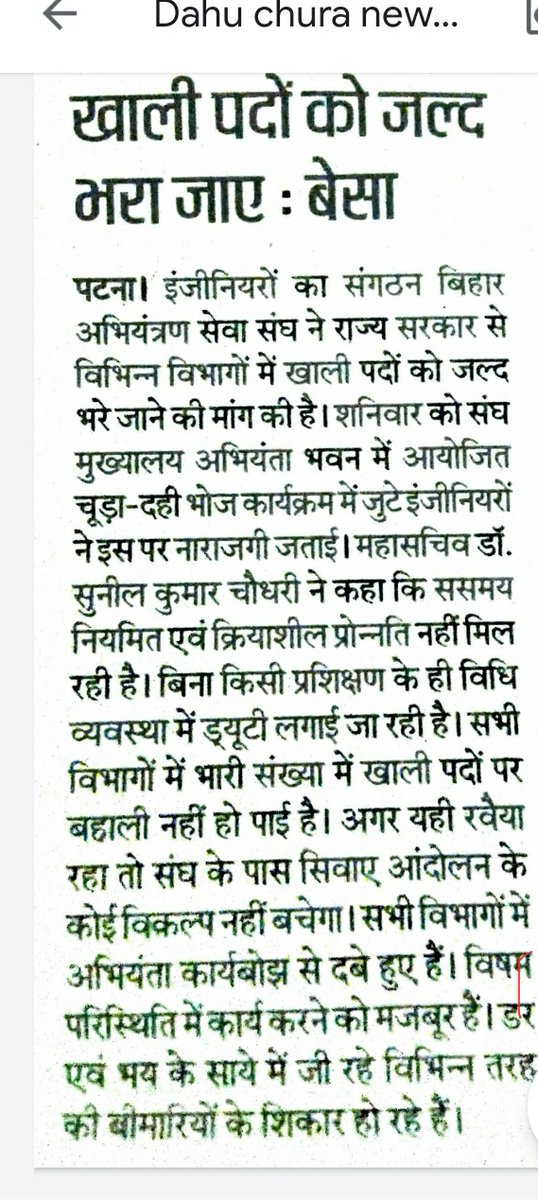 Dahu chura new...
खाली पदों को जल्द
भरा जाए : बेसा
पटना। इंजीनियरों का संगठन बिहार
अभियंत्रण सेवा संघ ने राज्य सरकार से
विभिन्न विभागों में खाली पदों को जल्द
भरे जाने की मांग की है। शनिवार को संघ
मुख्यालय अभियंता भवन में आयोजित
चूड़ा-दही भोज कार्यक्रम में जुटे इंजीनियरों
ने इस पर नाराजगी जताई। महासचिव डॉ.
सुनील कुमार चौधरी ने कहा कि ससमय
नियमित एवं क्रियाशील प्रोन्नति नहीं मिल
रही है। बिना किसी प्रशिक्षण के ही विधि
व्यवस्था में ड्यूटी लगाई जा रही है। सभी
विभागों में भारी संख्या में खाली पदों पर
बहाली नहीं हो पाई है। अगर यही रवैया
रहा तो संघ के पास सिवाए आंदोलन के
कोई विकल्प नहीं बचेगा। सभी विभागों में
अभियंता कार्यबोझ से दबे हुए हैं। विषम
परिस्थिति में कार्य करने को मजबूर हैं। डर
एवं भय के साये में जी रहे विभिन्न तरह
की बीमारियों के शिकार हो रहे हैं।